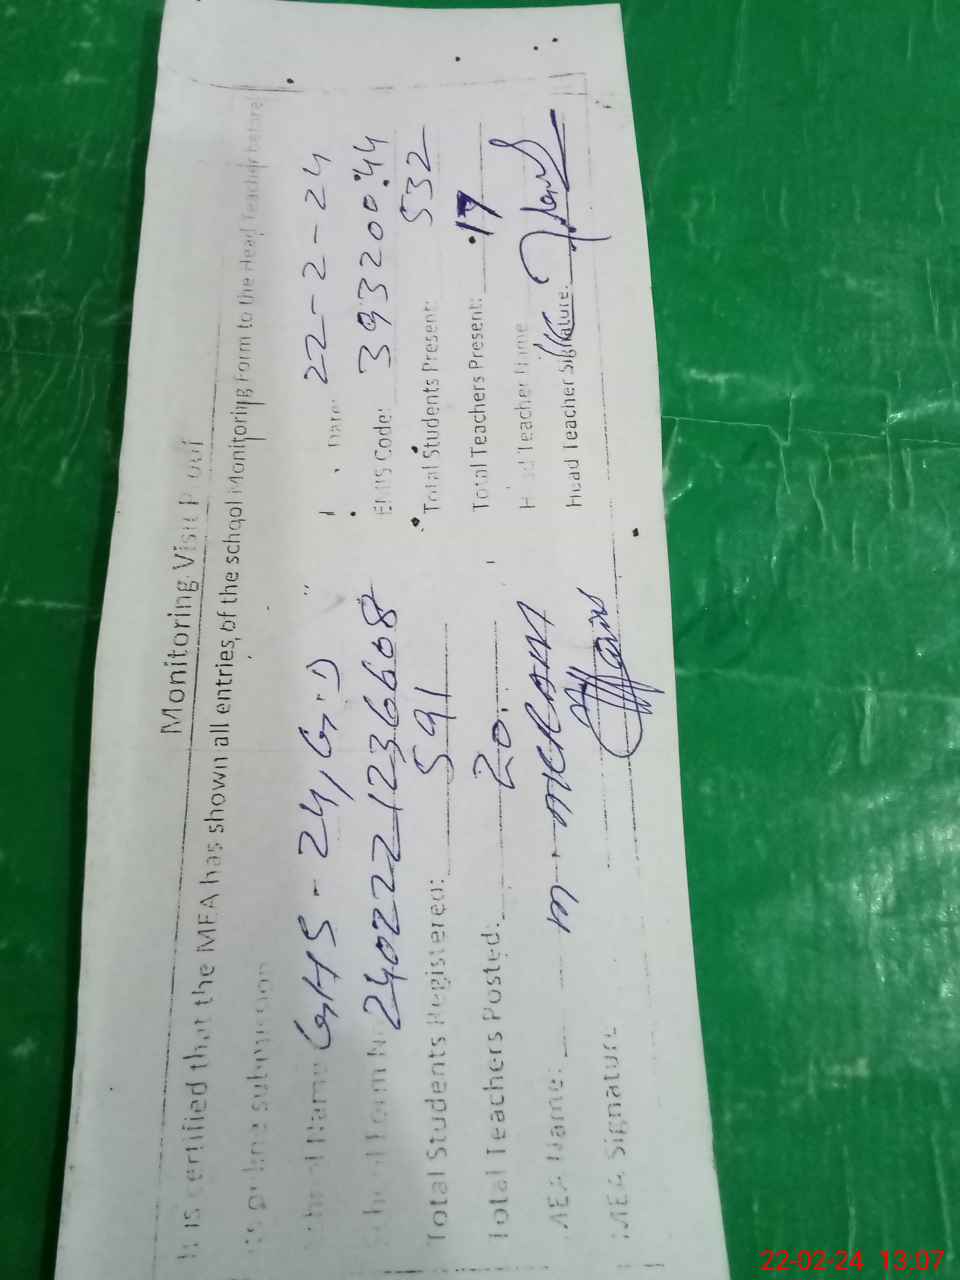 Monitoring Visit Proof
It is certified that the MEA has shown all entries, of the school Monitoring Form to the Head Teacher before
its online submission
School Name GHS - 24, G.D Date: 22-2-24
School Form No 240222 1236608 EMIS Code: 39320044
Total Students Registered: 591 Total Students Present: 532
Total Teachers Posted: 20 Total Teachers Present: 17
MEA Name: Head Teacher Name
MEA Signature Head Teacher Signature:
22-02-24 13:07